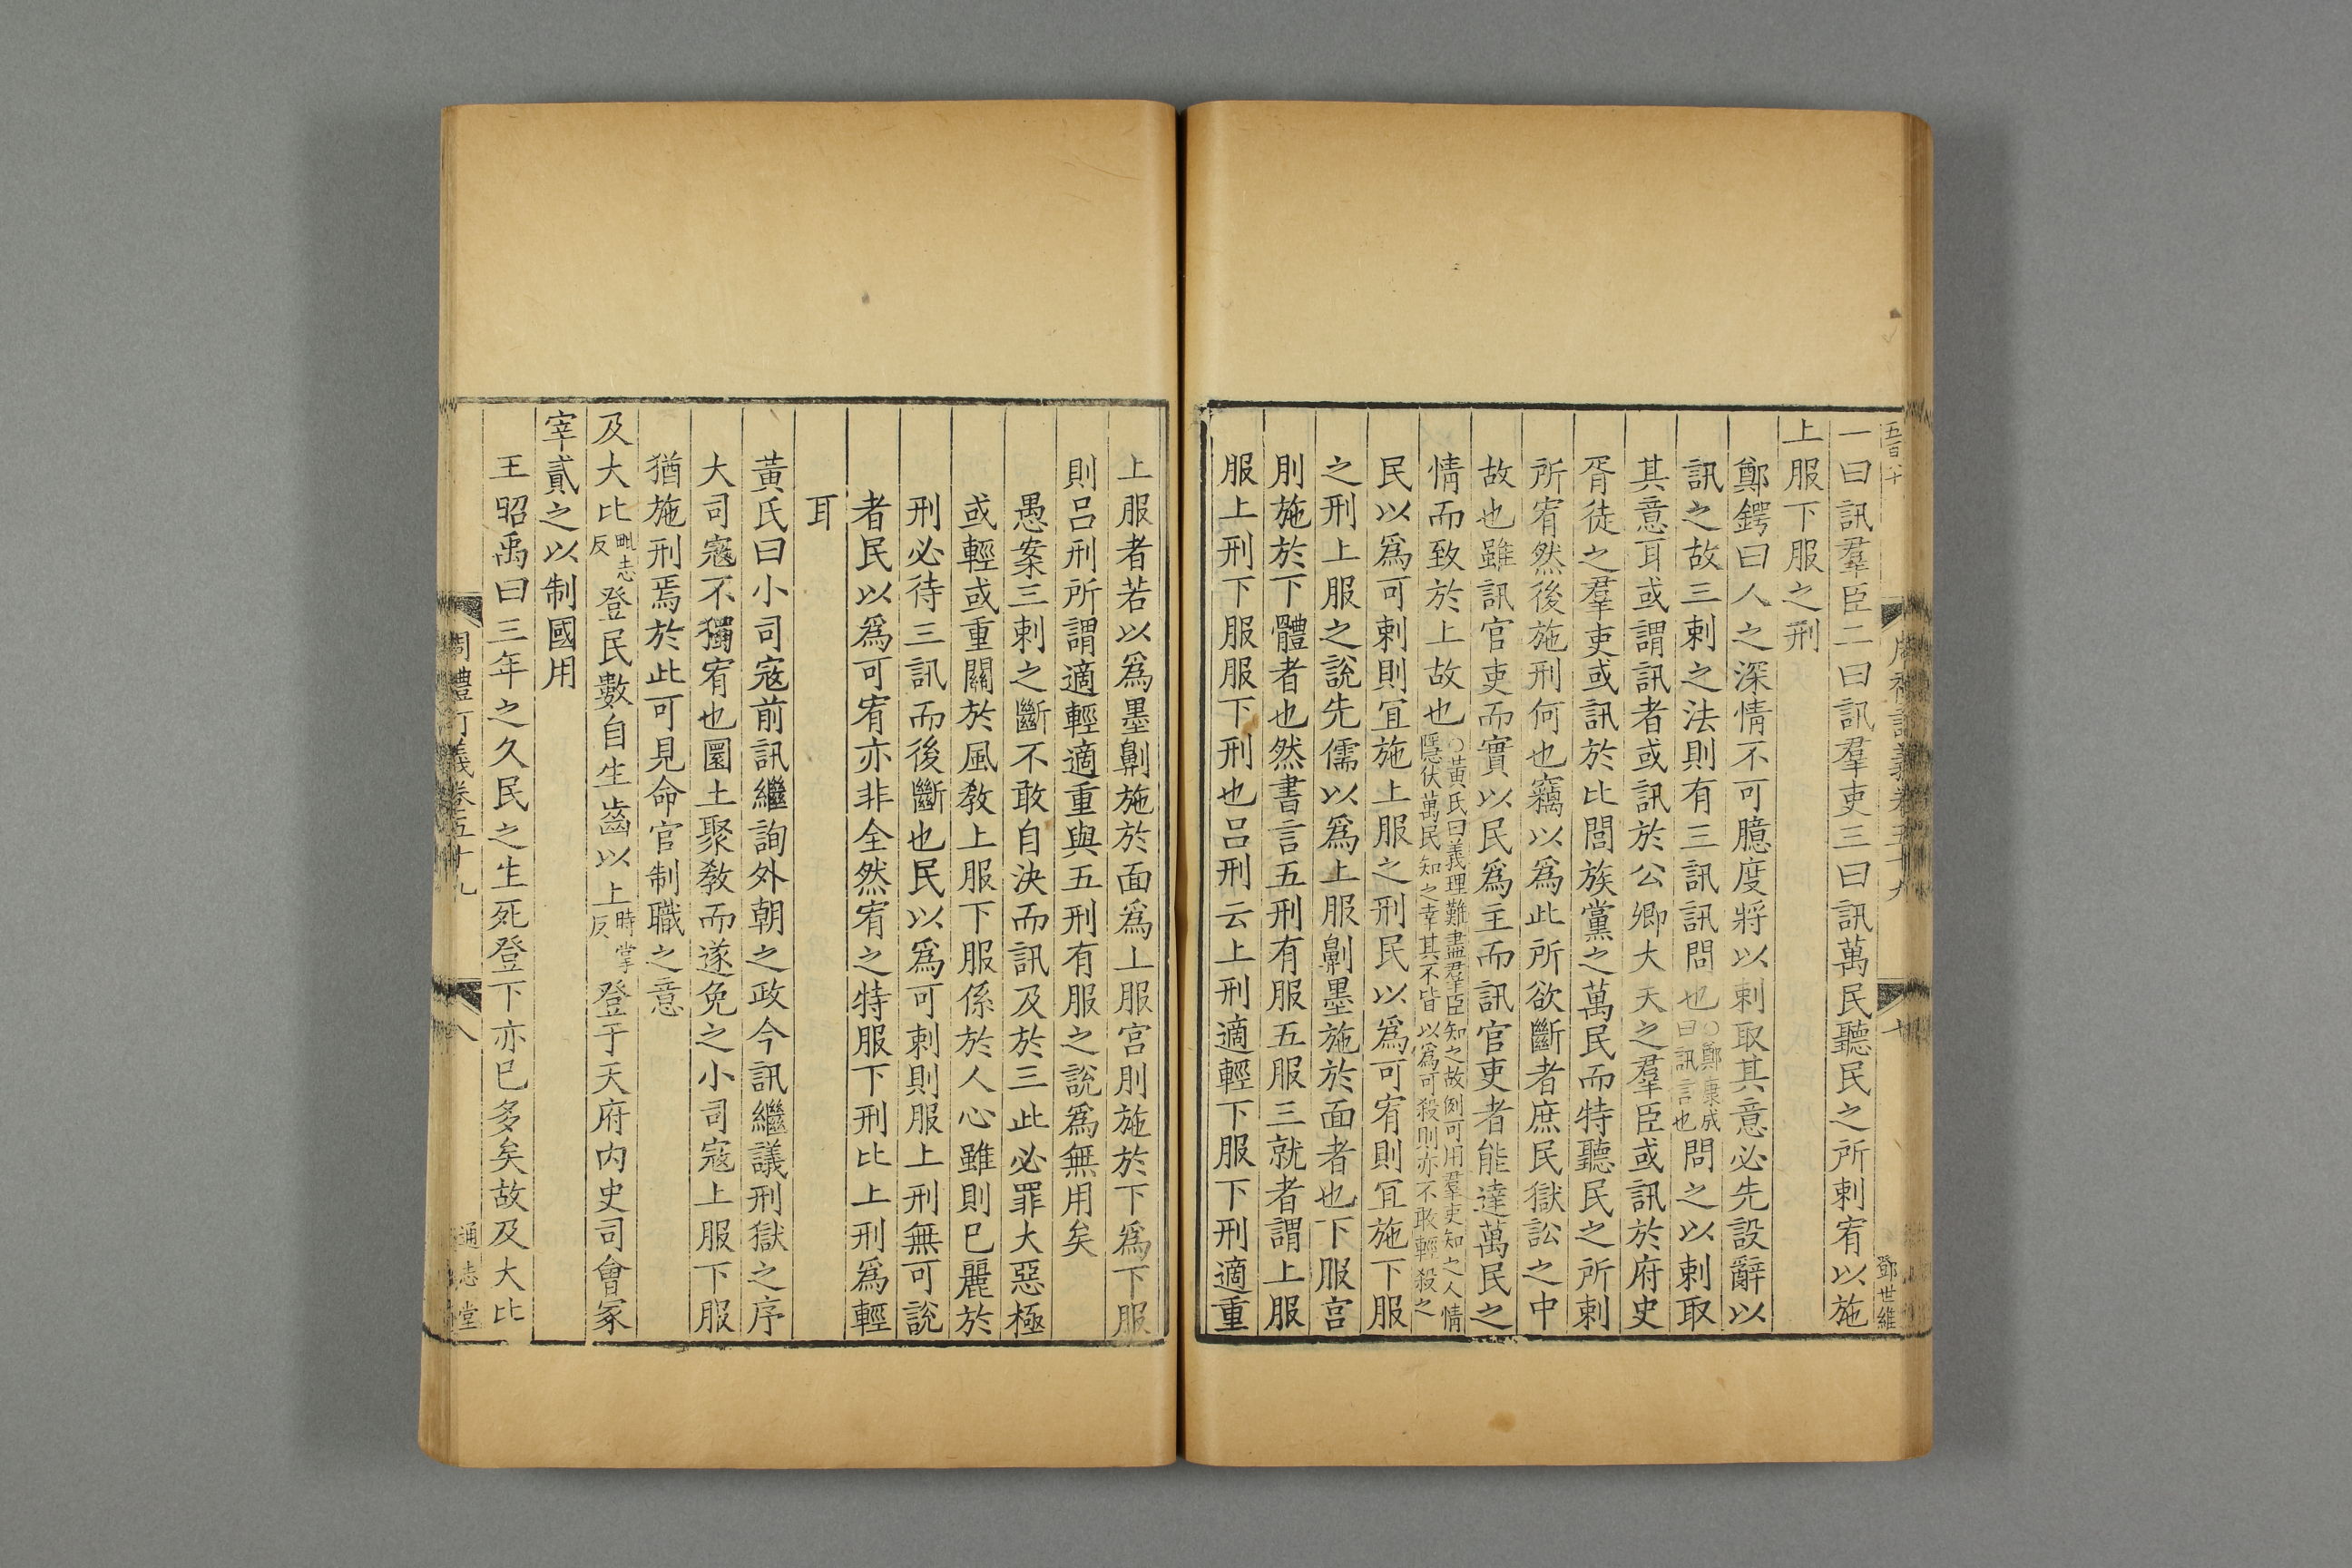 五百八十
鄧世維
一曰訊羣臣二曰訊羣吏三曰訊萬民聽民之所刺宥以施
上服下服之刑
鄭鍔曰人之深情不可臆度將以刺取其意必先設辭以
訊之故三刺之法則有三訊訊問也○鄭康成曰訊言也問之以刺取
其意耳或謂訊者或訊於公卿大夫之羣臣或訊於府史
胥徒之羣吏或訊於比閭族黨之萬民而特聽民之所刺
所宥然後施刑何也竊以爲此所欲斷者庶民獄訟之中
故也雖訊官吏而實以民爲主而訊官吏者能達萬民之
情而致於上故也○黃氏曰義理難盡羣臣知之故例可用羣吏知之人情隱伏萬民知之幸其不皆以爲可殺則亦不敢輕殺之
民以爲可刺則宜施上服之刑民以爲可宥則宜施下服
之刑上服之說先儒以爲上服劓墨施於面者也下服宫
刖施於下體者也然書言五刑有服五服三就者謂上服
服上刑下服服下刑也呂刑云上刑適輕下服下刑適重
上服者若以爲墨劓施於面爲上服宫刖施於下爲下服
則呂刑所謂適輕適重與五刑有服之說爲無用矣
愚案三刺之斷不敢自決而訊及於三此必罪大惡極
或輕或重關於風教上服下服係於人心雖則已麗於
刑必待三訊而後斷也民以爲可刺則服上刑無可說
者民以爲可宥亦非全然宥之特服下刑比上刑爲輕
耳
黃氏曰小司寇前訊繼詢外朝之政今訊繼議刑獄之序
大司寇不獨宥也圜土聚教而遂免之小司寇上服下服
猶施刑焉於此可見命官制職之意
及大比毗志反登民數自生齒以上時掌反登于天府内史司會冢
宰貳之以制國用
王昭禹曰三年之久民之生死登下亦已多矣故及大比
周禮訂義卷五十九
八
通志堂